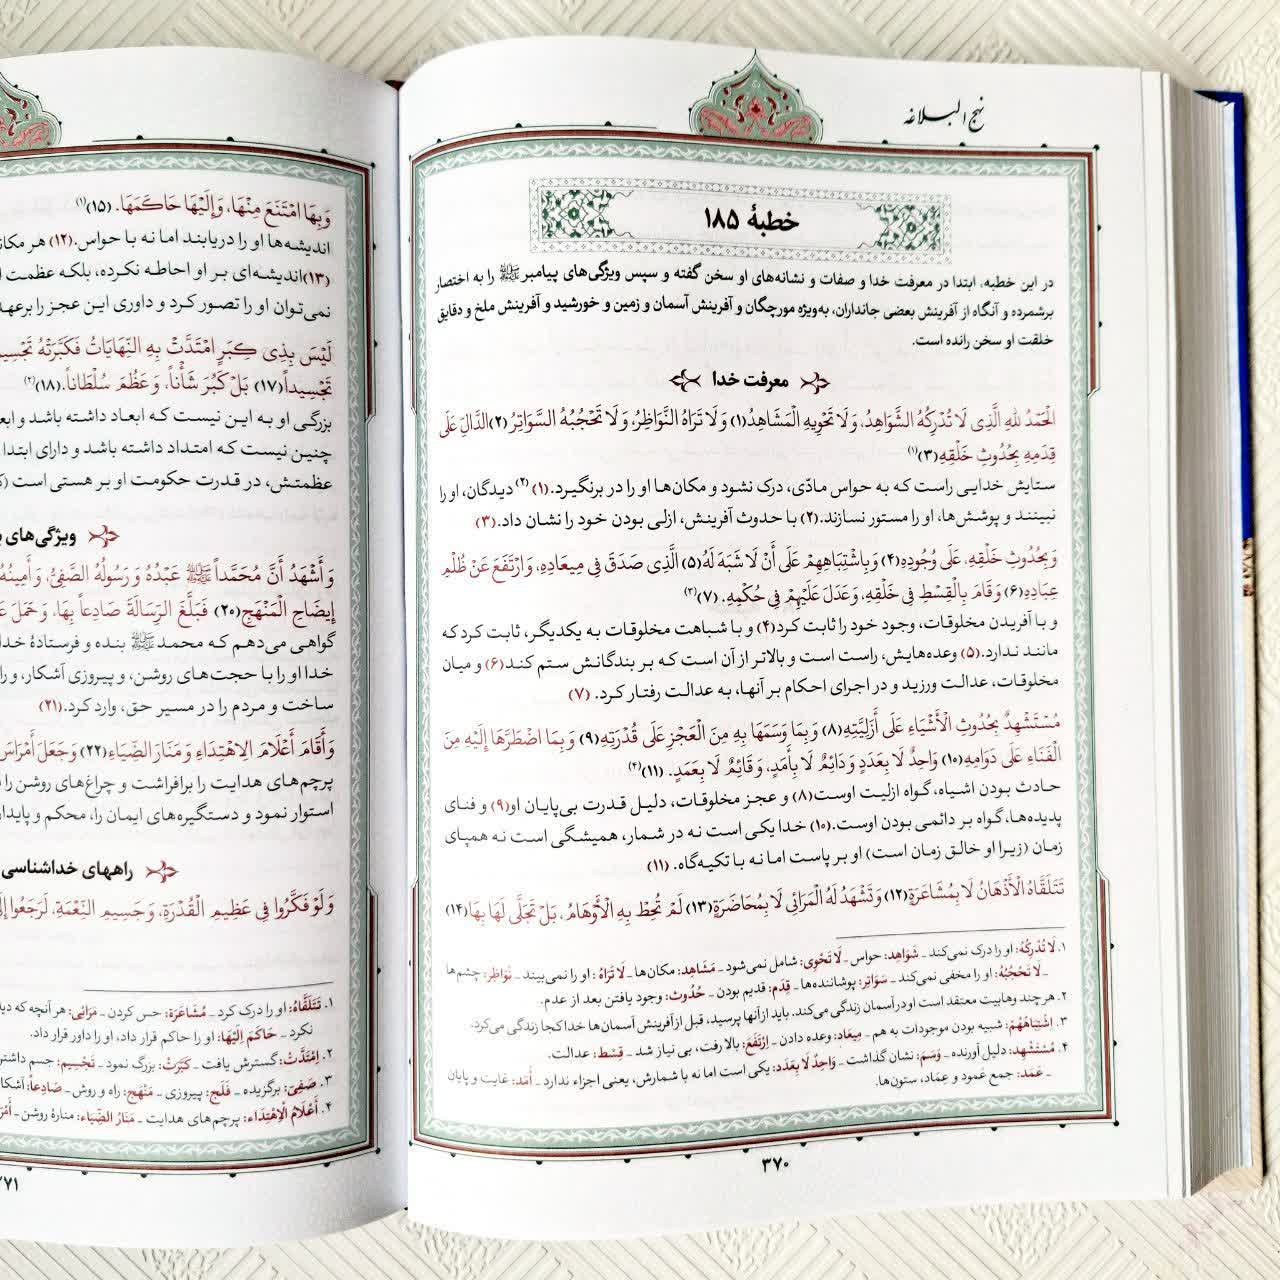 نهج البلاغه
خطبهٔ ۱۸۵
در این خطبه، ابتدا در معرفت خدا و صفات و نشانه‌های او سخن گفته و سپس ویژگی‌های پیامبر ﷺ را به اختصار
برشمرده و آنگاه از آفرینش بعضی جانداران، به‌ویژه مورچگان و آفرینش آسمان و زمین و خورشید و آفرینش ملخ و دقایق
خلقت او سخن رانده است.
معرفت خدا
الْحَمْدُ لِلهِ الَّذِي لَا تُدْرِكُهُ الشَّوَاهِدُ، وَلَا تَحْوِيهِ الْمَشَاهِدُ(۱) وَلَا تَرَاهُ النَّوَاظِرُ، وَلَا تَحْجُبُهُ السَّوَاتِرُ (۲) الدَّالِّ عَلَى
قِدَمِهِ بِحُدُوثِ خَلْقِهِ(۳)(۱)
ستایش خدایی راست که به حواس مادّی، درک نشود و مکان‌ها او را در برنگیرد.(۱) (۲) دیدگان، او را
نبینند و پوشش‌ها، او را مستور نسازند.(۲) با حدوث آفرینش، ازلی بودن خود را نشان داد.(۳)
وَبِحُدُوثِ خَلْقِهِ، عَلَى وُجُودِهِ(۴) وَبِاشْتِبَاهِهِمْ عَلَى أَنْ لَا شَبَهَ لَهُ(۵) الَّذِي صَدَقَ فِي مِيعَادِهِ، وَارْتَفَعَ عَنْ ظُلْمِ
عِبَادِهِ(۶) وَقَامَ بِالْقِسْطِ فِي خَلْقِهِ، وَعَدَلَ عَلَيْهِمْ فِي حُكْمِهِ. (۷)(۳)
و با آفریدن مخلوقات، وجود خود را ثابت کرد(۴) و با شباهت مخلوقات به یکدیگر، ثابت کرد که
مانند ندارد.(۵) وعده‌هایش، راست است و بالاتر از آن است که بر بندگانش ستم کند(۶) و میان
مخلوقات، عدالت ورزید و در اجرای احکام بر آنها، به عدالت رفتار کرد. (۷)
مُسْتَشْهِدٌ بِحُدُوثِ الْأَشْيَاءِ عَلَى أَزَلِيَّتِهِ(۸) وَبِمَا وَسَمَهَا بِهِ مِنَ الْعَجْزِ عَلَى قُدْرَتِهِ(۹) وَبِمَا اضْطَرَّهَا إِلَيْهِ مِنَ
الْفَنَاءِ عَلَى دَوَامِهِ(۱۰) وَاحِدٌ لَا بِعَدَدٍ وَدَائِمٌ لَا بِأَمَدٍ، وَقَائِمٌ لَا بِعَمَدٍ. (۱۱)(۴)
حادث بودن اشیاء، گواه ازلیت اوست(۸) و عجز مخلوقات، دلیل قدرت بی‌پایان او(۹) و فنای
پدیده‌ها، گواه بر دائمی بودن اوست.(۱۰) خدا یکی است نه در شمار، همیشگی است نه همپای
زمان (زیرا او خالق زمان است) او بر پاست اما نه با تکیه‌گاه. (۱۱)
تَتَلَقَّاهُ الْأَذْهَانُ لَا بِمُشَاعَرَةٍ(۱۲) وَتَشْهَدُ لَهُ الْمَرَائِي لَا بِمُحَاضَرَةٍ(۱۳) لَمْ تُحِطْ بِهِ الْأَوْهَامُ، بَلْ تَجَلَّى لَهَا بِهَا (۱۴)
۱. لَا تُدْرِكُهُ: او را درک نمی‌کند ـ شَوَاهِد: حواس ـ لَا تَحْوِي: شامل نمی‌شود ـ مَشَاهِد: مکان‌ها ـ لَا تَرَاهُ: او را نمی‌بیند ـ نَوَاظِر: چشم‌ها
ـ لَا تَحْجُبُهُ: او را مخفی نمی‌کند ـ سَوَاتِر: پوشاننده‌ها ـ قِدَم: قدیم بودن ـ حُدُوث: وجود یافتن بعد از عدم.
۲. هر چند وهابیت معتقد است او در آسمان زندگی می‌کند. باید از آنها پرسید، قبل از آفرینش آسمان‌ها خدا کجا زندگی می‌کرد.
۳. اِشْتِبَاهُهُمْ: شبیه بودن موجودات به هم ـ مِیعَاد: وعده دادن ـ اِرْتَفَعَ: بالا رفت، بی نیاز شد ـ قِسْط: عدالت.
۴. مُسْتَشْهِد: دلیل آورنده ـ وَسَمَ: نشان گذاشت ـ وَاحِدٌ لَا بِعَدَد: یکی است اما نه با شمارش، یعنی اجزاء ندارد ـ أَمَد: غایت و پایان
ـ عَمَد: جمع عَمود و عِماد، ستون‌ها.
۳۷۰
وَبِهَا امْتَنَعَ مِنْهَا، وَإِلَيْهَا حَاكَمَهَا. (۱۵)(۱)
اندیشه‌ها او را دریابند اما نه با حواس.(۱۲) هر
(۱۳) اندیشه‌ای بر او احاطه نکرده، بلکه عظمت
نمی‌توان او را تصور کرد و داوری این عجز را
لَيْسَ بِذِي كِبَرٍ امْتَدَّتْ بِهِ النِّهَايَاتُ فَكَبَّرَتْهُ
تَجْسِيداً(۱۷) بَلْ كَبُرَ شَأْناً، وَعَظُمَ سُلْطَاناً.(۱۸)(۲)
بزرگی او به این نیست که ابعاد داشته باشد و
چنین نیست که امتداد داشته باشد و دارای ابتدا
عظمتش، در قدرت حکومت او بر هستی است
ویژگی‌های
وَأَشْهَدُ أَنَّ مُحَمَّداً ﷺ عَبْدُهُ وَرَسُولُهُ الصَّفِيُّ، وَأَمِينُهُ
إِيضَاحِ الْمَنْهَجِ(۲۰) فَبَلَّغَ الرِّسَالَةَ صَادِعاً بِهَا، وَحَمَلَ
گواهی می‌دهم که محمد ﷺ بنده و فرستادهٔ خدا
خدا او را با حجت‌های روشن، و پیروزی آشکار،
ساخت و مردم را در مسیر حق، وارد کرد.(۲۱)
وَأَقَامَ أَعْلَامَ الِاهْتِدَاءِ وَمَنَارَ الضِّيَاءِ(۲۲) وَجَعَلَ أَمْرَاسَ
پرچم‌های هدایت را برافراشت و چراغ‌های روشن را
استوار نمود و دستگیره‌های ایمان را، محکم و
راههای خداشناسی
وَلَوْ فَكَّرُوا فِي عَظِيمِ الْقُدْرَةِ، وَجَسِيمِ النِّعْمَةِ، لَرَجَعُوا
۱. تَتَلَقَّاهُ: او را درک کرد ـ مُشَاعَرَة: حس کردن ـ مَرَائِي: هر آنچه که
نکرد ـ حَاكَمَ إِلَيْهَا: او را حاکم قرار داد، او را داور قرار داد.
۲. اِمْتَدَّتْ: گسترش یافت ـ كَبَّرَتْ: بزرگ نمود ـ تَجْسِیم: جسم
۳. صَفِيّ: برگزیده ـ فَلَج: پیروزی ـ مَنْهَج: راه و روش ـ صَادِعاً:
۴. أَعْلَامُ الِاهْتِدَاء: پرچم‌های هدایت ـ مَنَارُ الضِّيَاء: منارهٔ روشن ـ